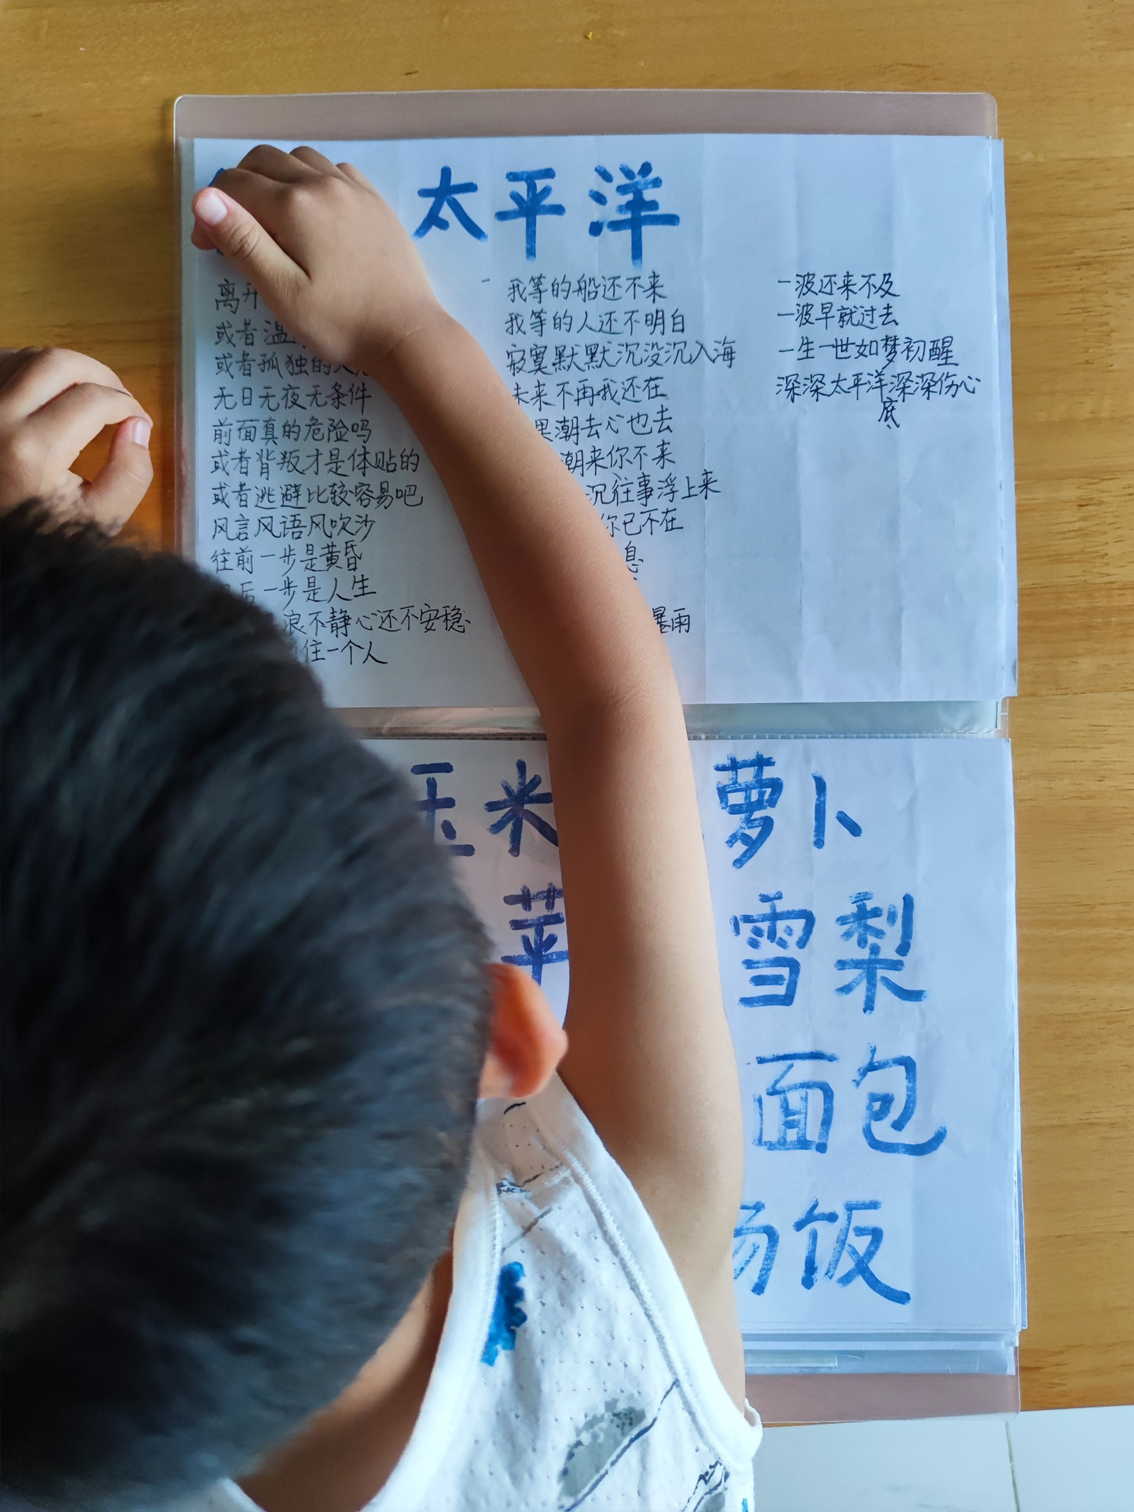 太平洋
离开
或者温
或者孤独的人
无日无夜无条件
前面真的危险吗
或者背叛才是体贴的
或者逃避比较容易吧
风言风语风吹沙
往前一步是黄昏
后一步是人生
浪不静心还不安稳
住一个人
我等的船还不来
我等的人还不明白
寂寞默默沉没沉入海
未来不再我还在
潮去心也去
潮来你不来
沉往事浮上来
你已不在
息
暴雨
一波还来不及
一波早就过去
一生一世如梦初醒
深深太平洋底深深伤心
玉米 萝卜
苹 雪梨
面包
汤饭